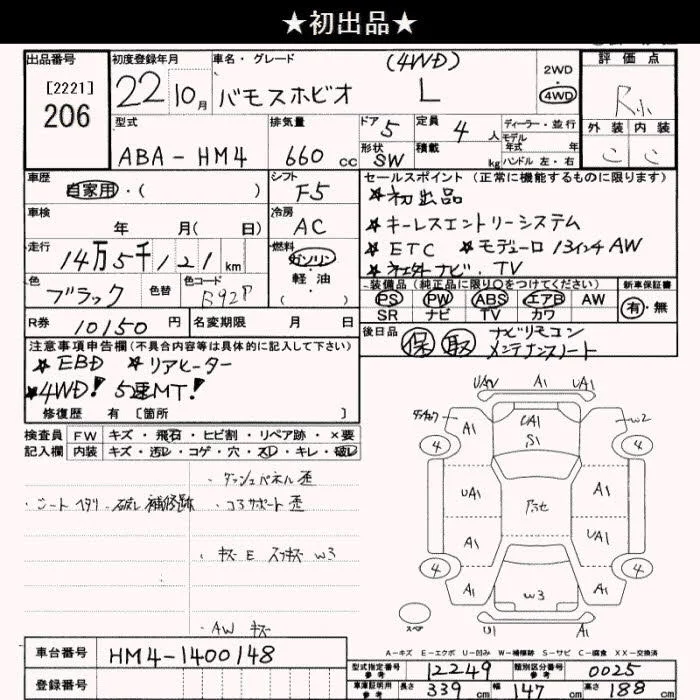 ★初出品★
出品番号
[2221]
206
初度登録年月
22 10月
車名・グレード
バモスホビオ
(4WD)
L
2WD
・
4WD
評価点
R
外装 内装
C C
型式
ABA-HM4
排気量
660 cc
ドア 5
形状 SW
定員 4 人
積載 kg
ディーラー・並行
モデル
年式 年
ハンドル 左・右
車歴
自家用・( )
シフト
F5
車検
年 月( 日)
冷房
AC
走行
14万5千121 km
燃料
ガソリン
・
軽油
・
( )
色
ブラック
色替
色コード
B92P
R券
10150 円
名変期限 月 日
セールスポイント (正常に機能するものに限ります)
★初出品
★キーレスエントリーシステム
★ETC ★モデューロ 13インチAW
★社外ナビ.TV
装備品 (純正品に限り○をつけてください)
PS PW ABS エアB AW
SR ナビ TV カワ
新車保証書
有・無
後日品
保 取
ナビリモコン
メンテナンスノート
注意事項申告欄(不具合内容等は具体的に記入して下さい)
★EBD ★リアヒーター
★4WD! 5速MT!
修復歴 有 [箇所 ]
検査員
記入欄
FW キズ・飛石・ヒビ割・リペア跡・×要
内装 キズ・汚レ・コゲ・穴・スレ・キレ・破レ
・ダッシュパネル歪
・シートヘタリ・破レ補修跡
・コアサポート歪
・キズ E スリキズ W3
・AW キズ
UAV A1 UA1
A1
UA1
S1
W2
4 4
UA1 A1
UA1
A1
A1
4 4
A1 A1
W3
スペア
U1 A1
A-キズ E-エクボ U-凹み W-補修跡 S-サビ C-腐食 XX-交換済
車台番号
HM4-1400148
登録番号
型式指定番号
参考
12249
類別区分番号
参考
0025
車庫証明用
参考
長さ 339 cm 幅 147 cm 高さ 188 cm